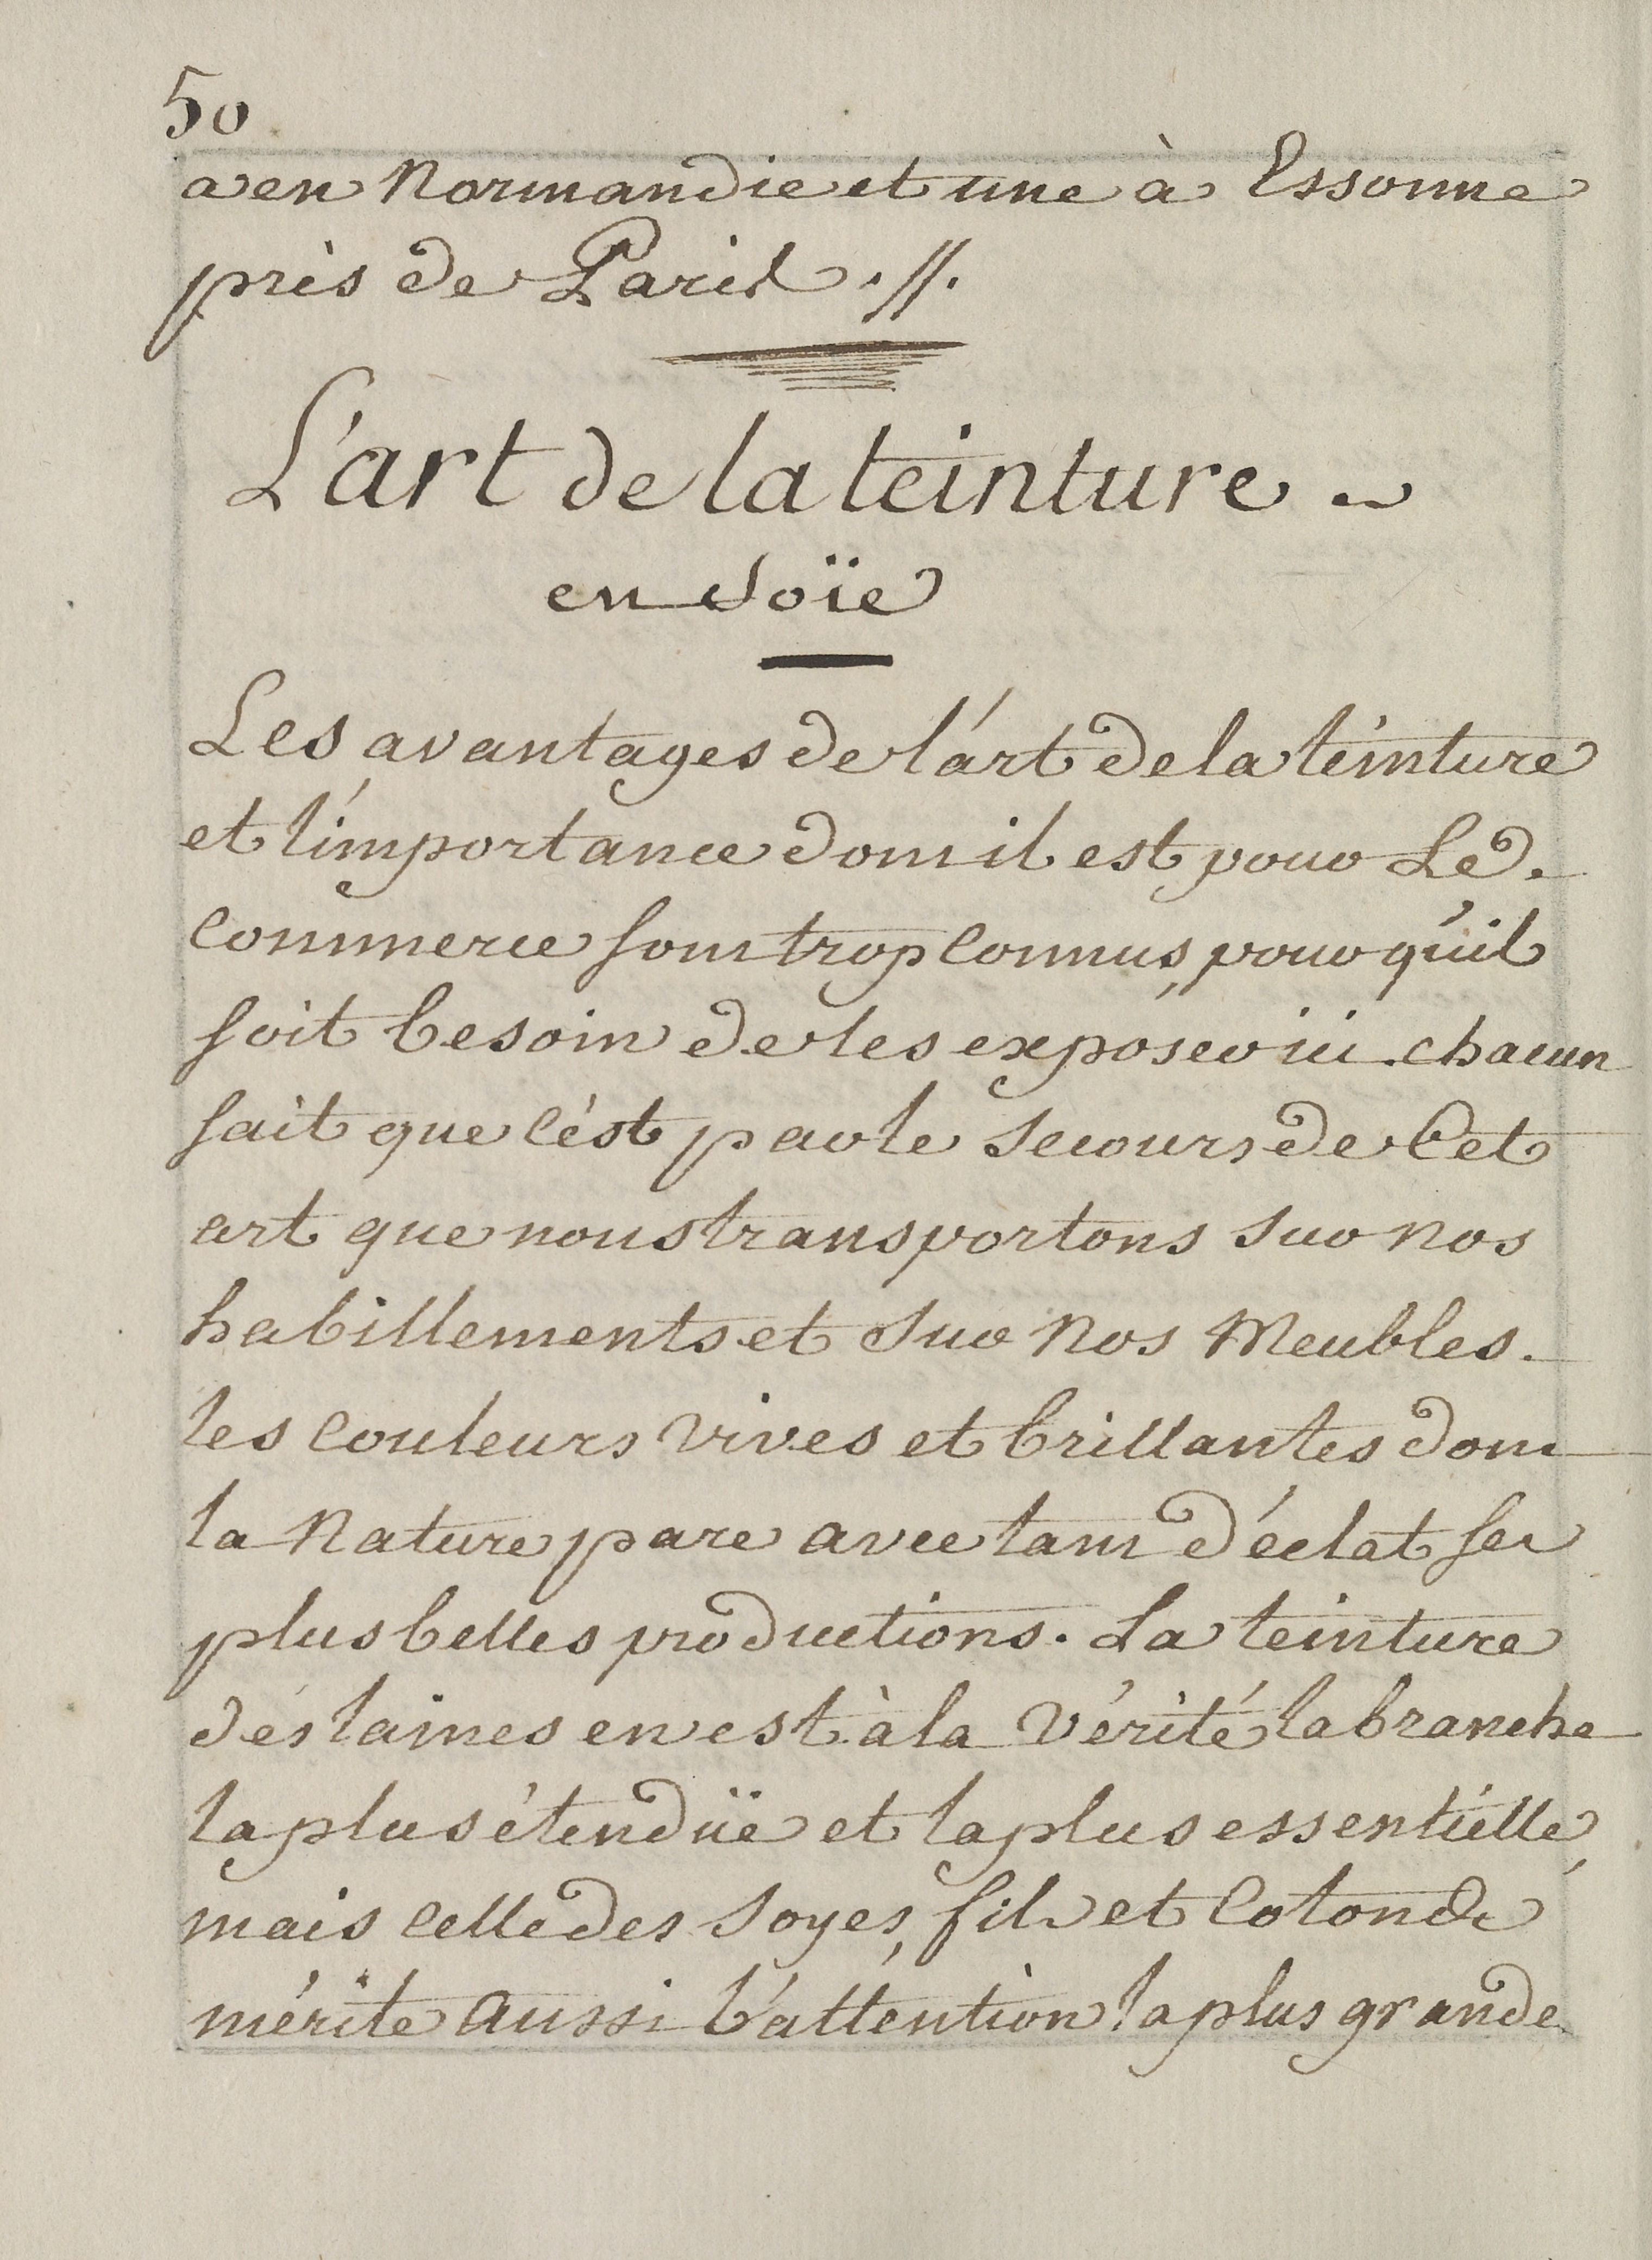 50
a en Normandie et une à Essonne
près de Paris .//.
L'art de la teinture
en Soïe
Les avantages de l'art de la teinture
et l'importance dont il est pour Le
Commerce sont trop Connus, pour qu'il
soit besoin de les exposer ici. chacun
sait que c'est par le secours de Cet
art que nous transportons sur nos
habillements et sur nos Meubles.
les Couleurs vives et brillantes dont
la Nature pare avec tant d'éclat ses
plus belles productions. La teinture
des laines en est à la vérité la branche
la plus étendüe et la plus essentielle,
mais celle des soyes, fils et Cotons
mérite aussi l'attention la plus grande